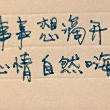 事事想满开
心情自然嗨